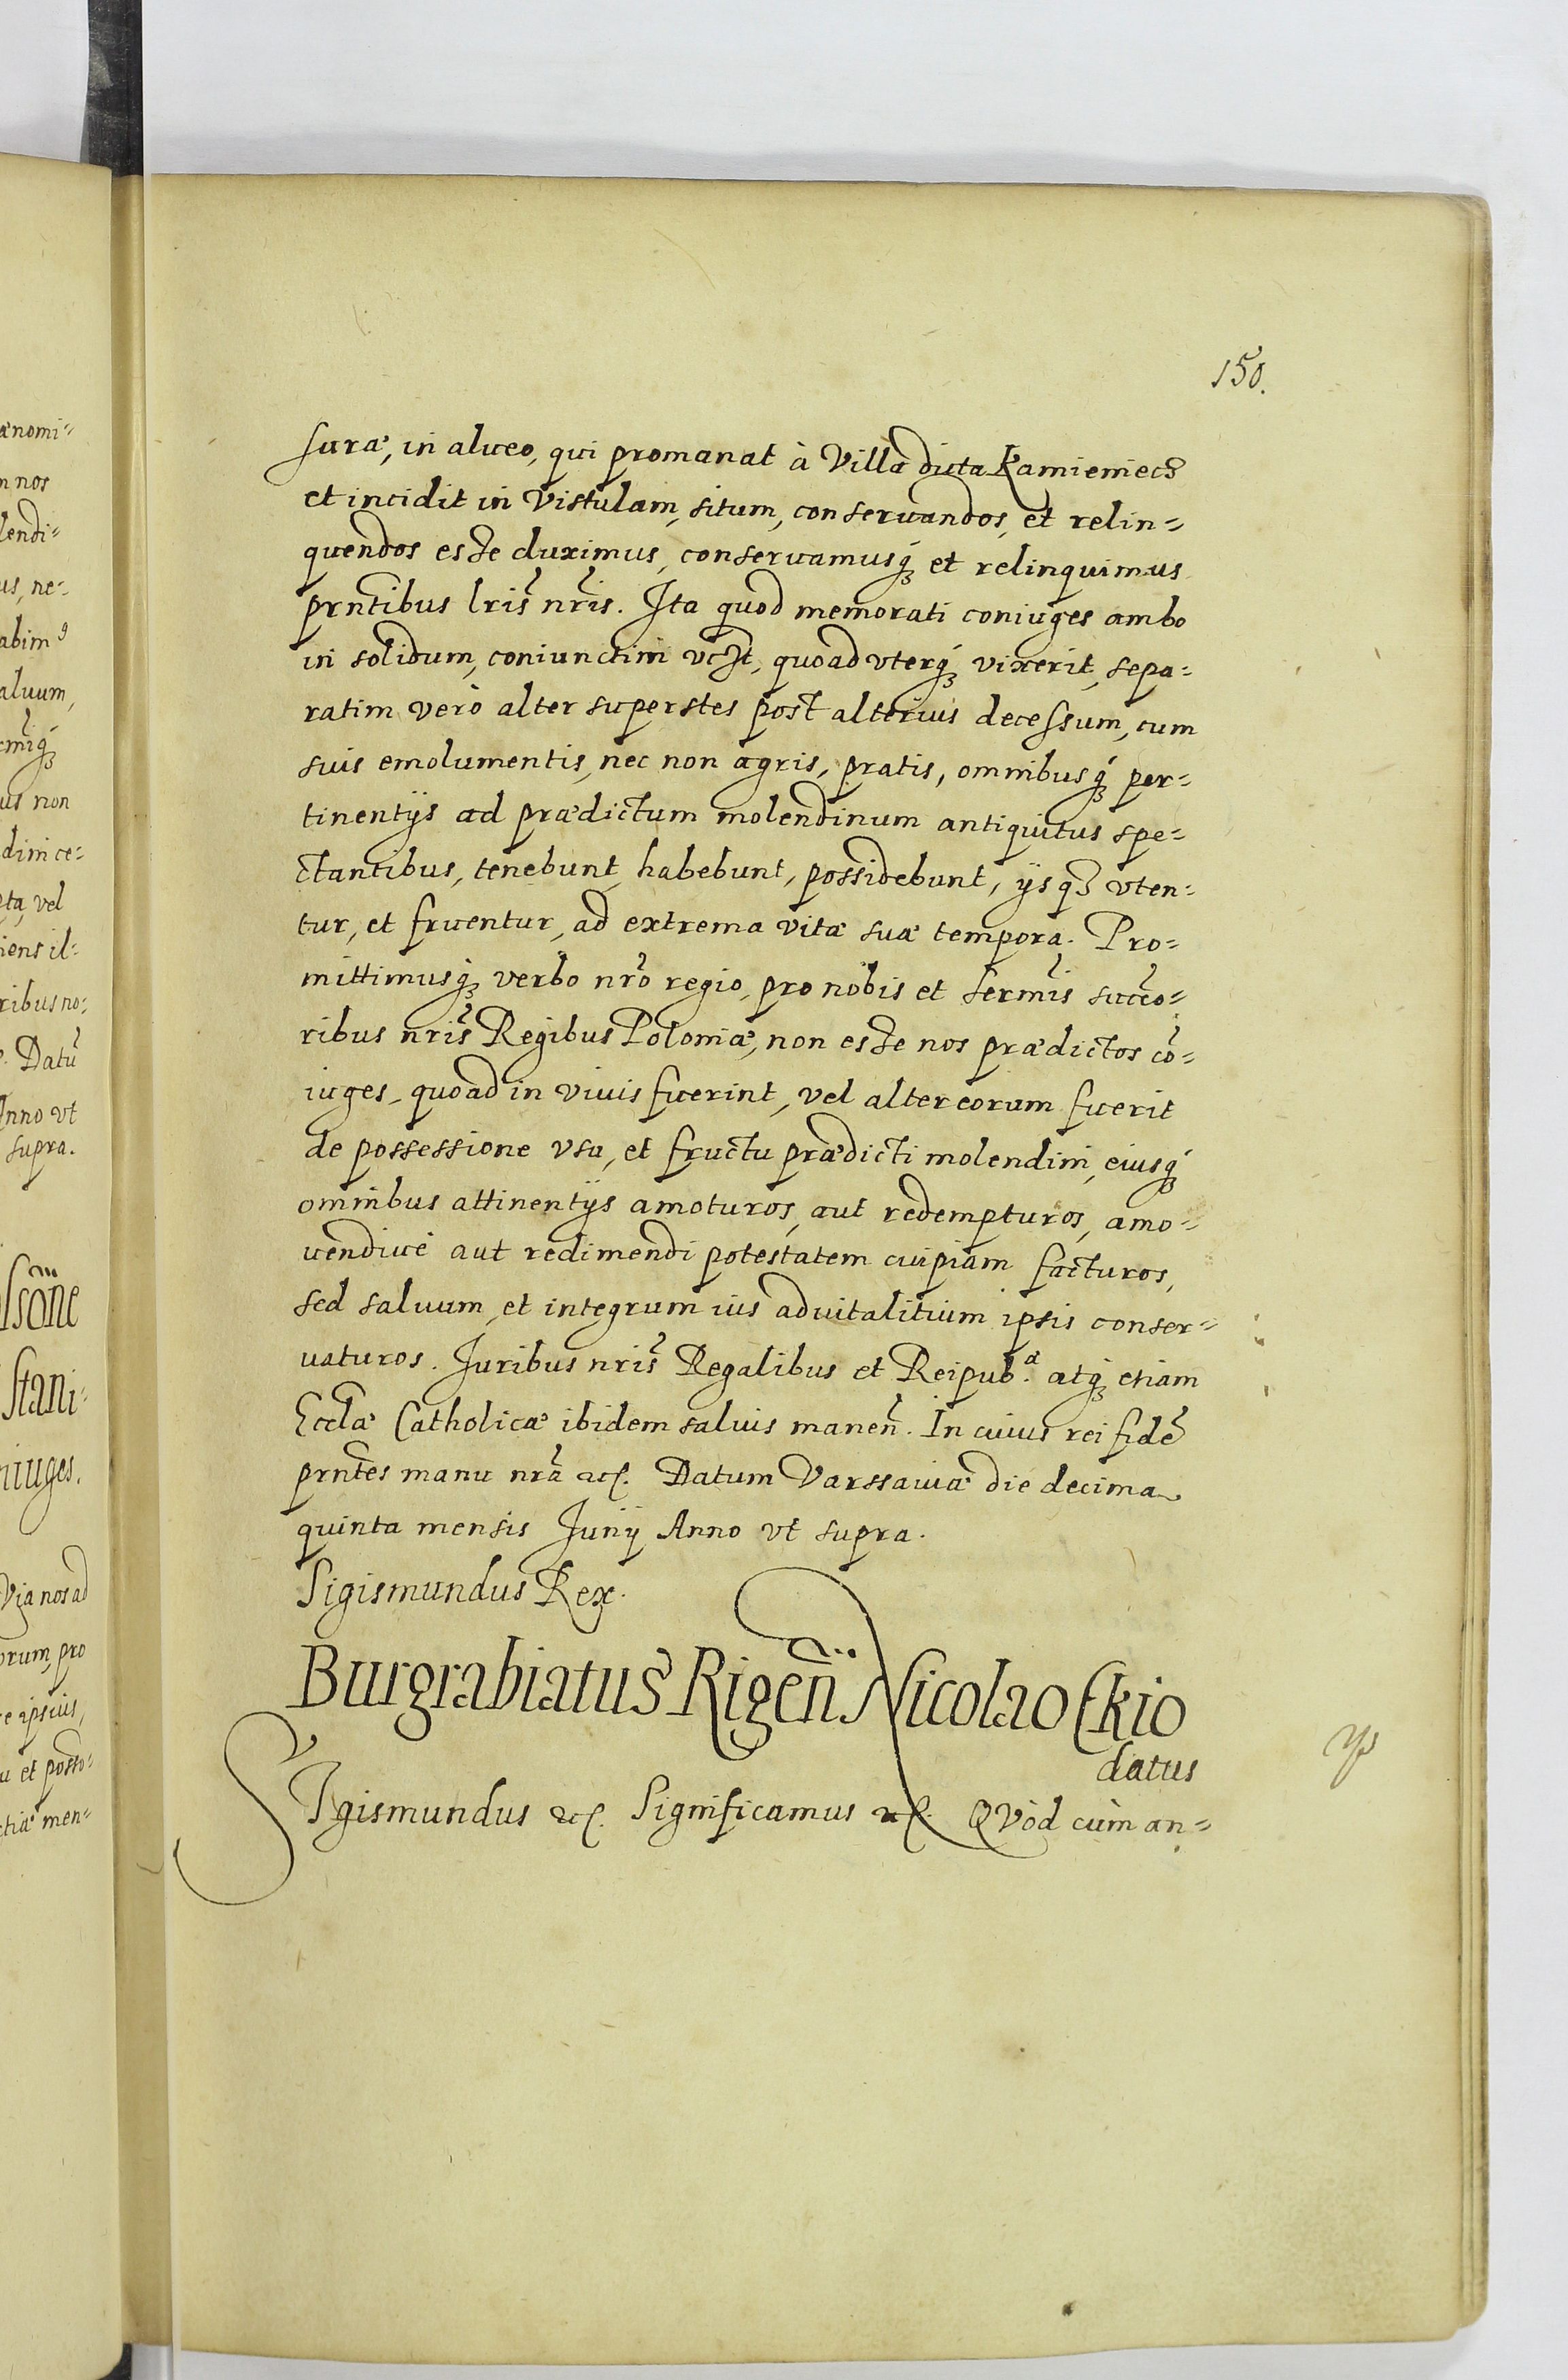 150.
suræ, in alveo, qui promanat à Villa dicta Kamieniecz
et incidit in Vistulam, situm, conseruandos, et relin=
quendos esse duximus, conseruamusq́ꝫ et relinquimus
prntibus lris nris. Ita quod memorati coniuges ambo
in solidum, coniunctim vt st, quoad vterq́ꝫ vixerit, sepa=
ratim verò alter superstes post alterius decessum, cum
suis emolumentis, nec non agris, pratis, omnibusq́ꝫ per=
tinentijs ad prædictum molendinum antiquitus spe=
ctantibus, tenebunt, habebunt, possidebunt, ijsqꝫ vten=
tur, et fruentur, ad extrema vitæ suæ tempora. Pro=
mittimusq́ꝫ verbo nro regio, pro nobis et Sermis succo=
ribus nris Regibus Poloniæ, non esse nos prædictos cō=
iuges, quoad in viuis fuerint, vel alter eorum fuerit
de possessione vsu, et fructu prædicti molendini, eiusq́ꝫ
omnibus attinentijs amoturos, aut redempturos, amo=
uendiué aut redimendi potestatem cuipiam facturos,
sed saluum, et integrum ius aduitalitium ipsis conser=
uaturos. Juribus nris Regalibus et Reipub.æ atq́ꝫ etiam
Ecclæ Catholicæ ibidem saluis manen̄. In cuius rei fidē
prntes manu nra etc. Datum Varssauiæ die decima
quinta mensis Junij Anno vt supra.
Sigismundus Rex.
Burgrabiatus Rigen̄ Nicolao Ekio
datus
SIgismundus etc. Significamus etc. QVòd cùm an=
ænomi=
n nos
lendi=
us, ne=
abimꝰ
aluum,
us non
dini ce=
pta, vel
iens il=
ribus no=
Datū
Anno vt
supra.
Stani=
niuges.
Via nos ad
orum, pro
e ipsius,
u et posto=
ctiæ men=